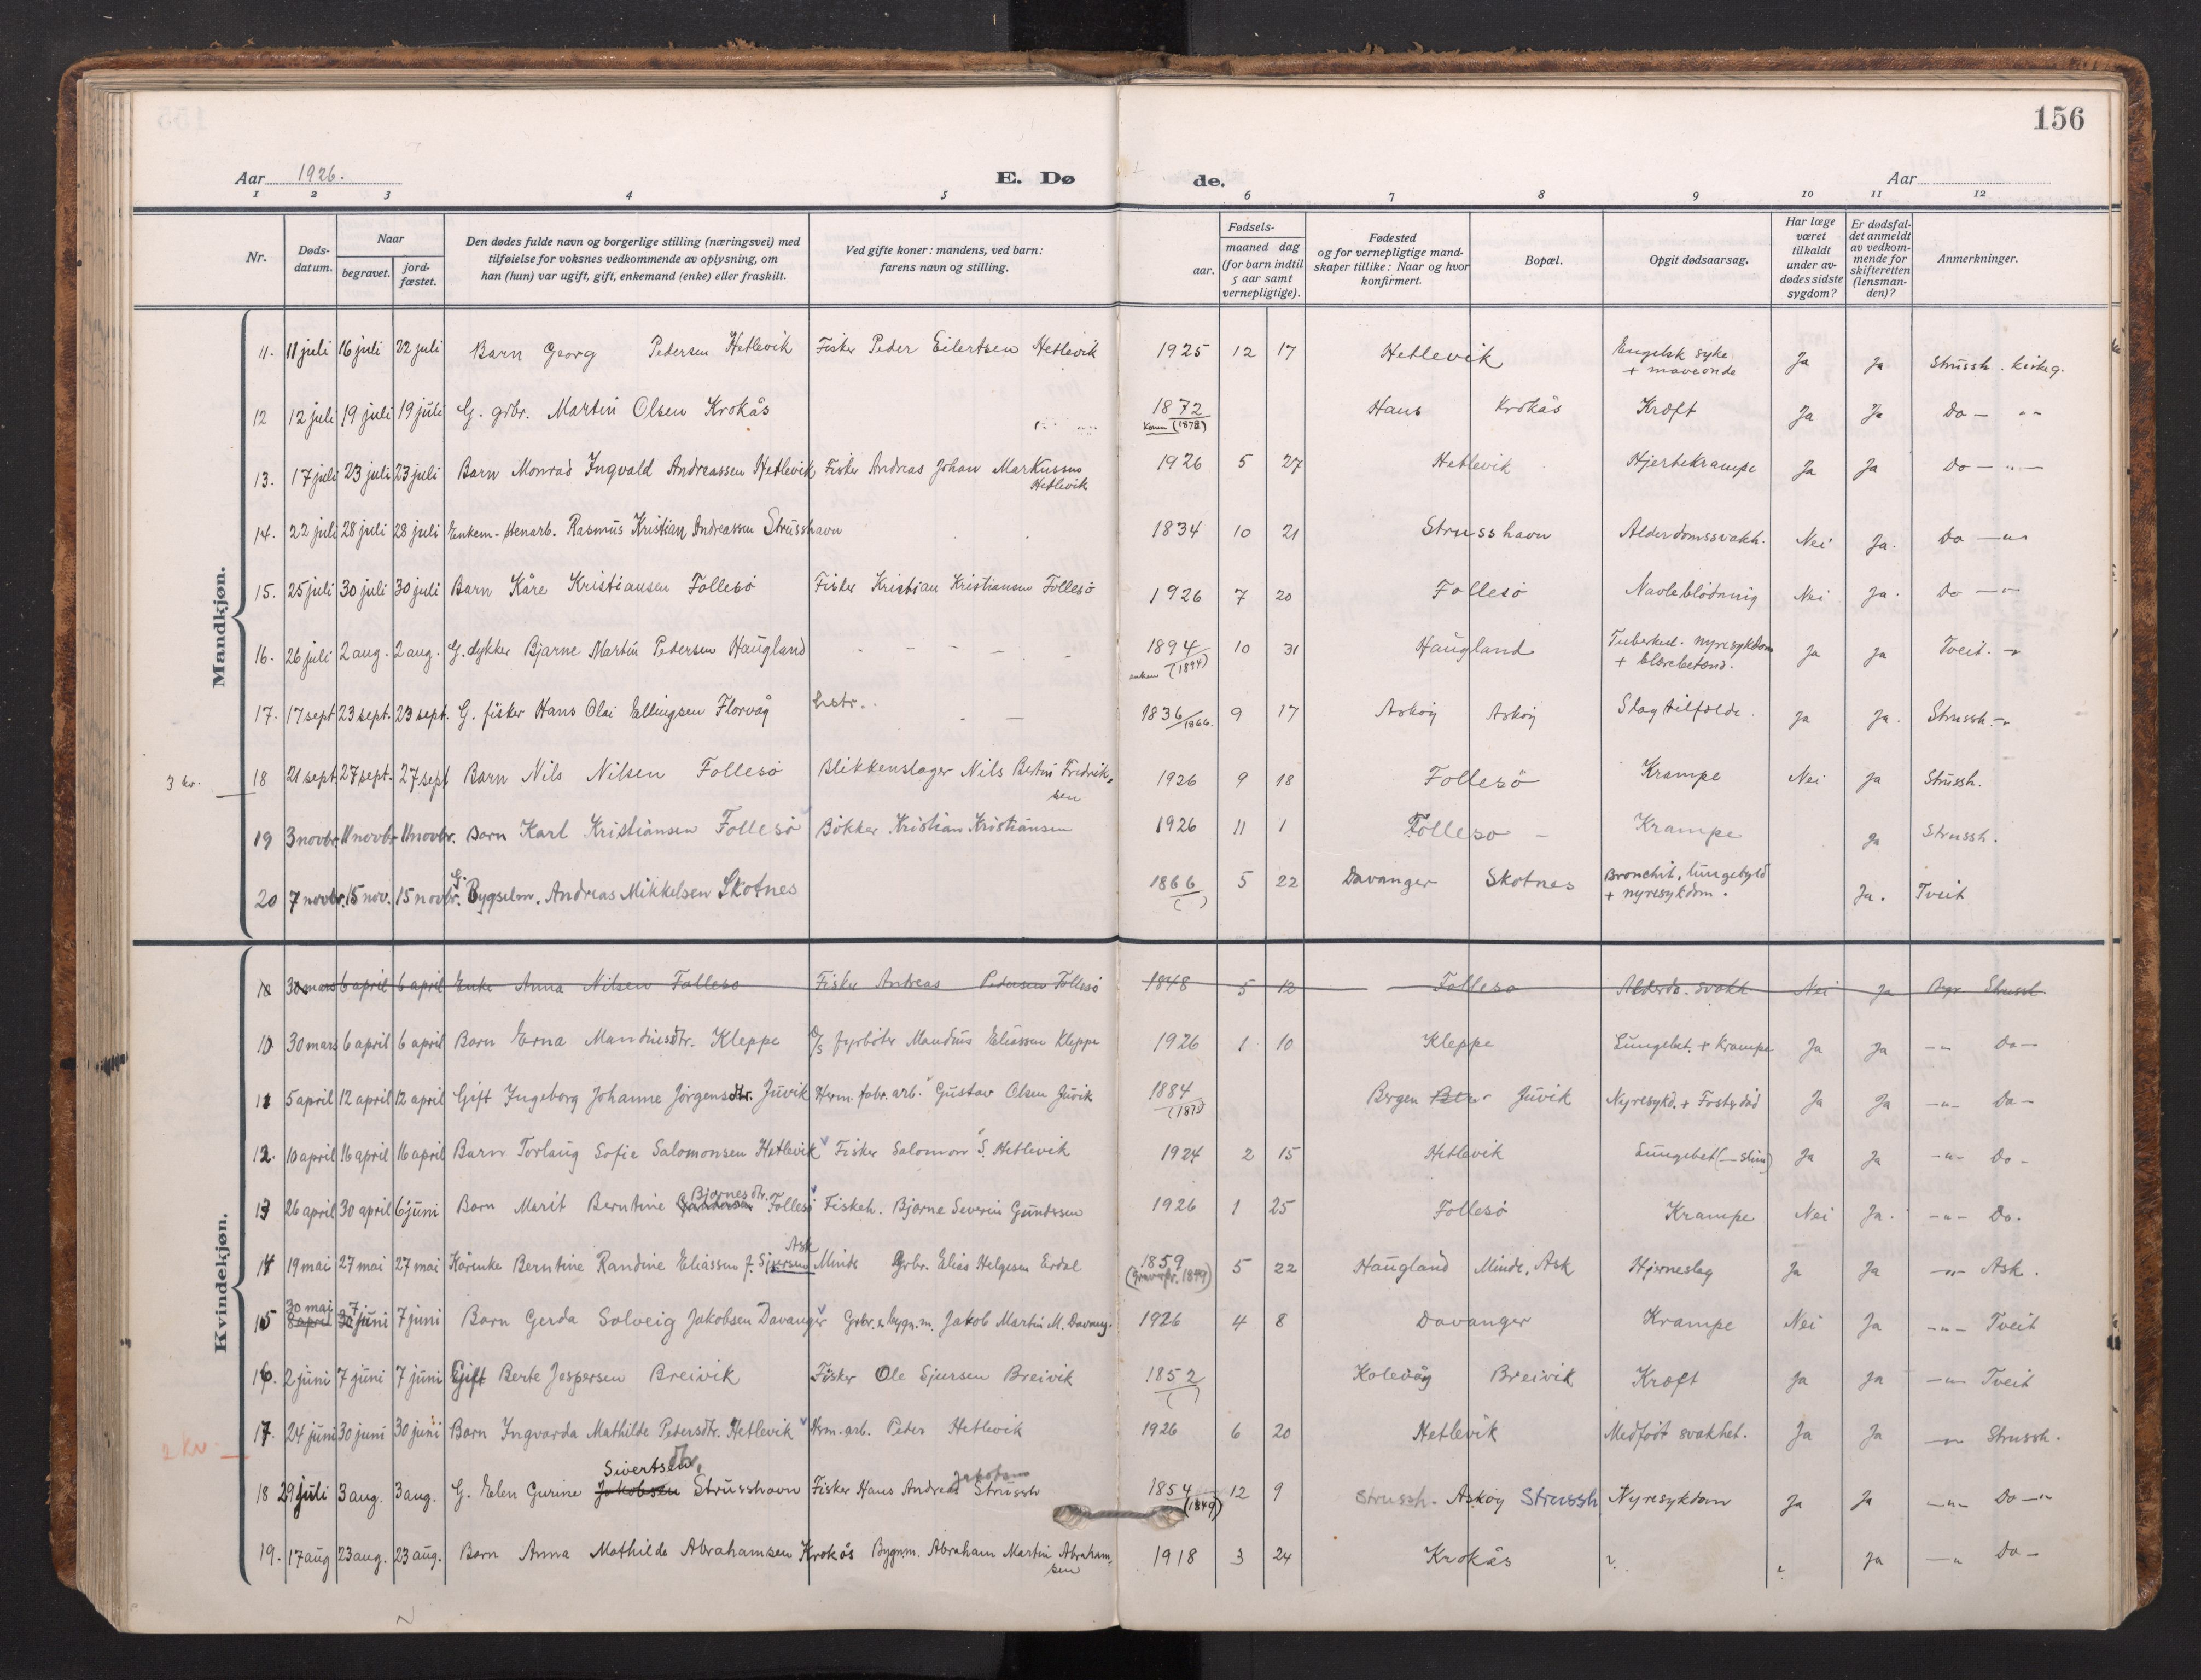 156
Aar 1926.
E. Dø
de.
Aar
1 2 3 4 5 6 7 8 9 10 11 12
Nr.
Døds-
datum.
Naar
begravet.
jord-
fæstet.
Den dødes fulde navn og borgerlige stilling (næringsvei) med
tilføielse for voksnes vedkommende av oplysning, om
han (hun) var ugift, gift, enkemand (enke) eller fraskilt.
Ved gifte koner: mandens, ved barn:
farens navn og stilling.
aar.
Fødsels-
maaned dag
(for barn indtil
5 aar samt
vernepligtige).
Fødested
og for vernepligtige mand-
skaper tillike: Naar og hvor
konfirmert.
Bopæl.
Opgit dødsaarsag.
Har læge
været
tilkaldt
under av-
dødes sidste
sygdom?
Er dødsfal-
det anmeldt
av vedkom-
mende for
skifteretten
(lensman-
den)?
Anmerkninger.
Mandkjøn.
11. 11 juli 16 juli 22 juli Barn Georg Pedersen Hetlevik Fisker Peder Eilertsen Hetlevik 1925 12 17 Hetlevik Engelsk syke + maveonde Ja Ja Strussh. kirkeg.
12 12 juli 19 juli 19 juli G. grbr. Martin Olsen Krokås 1872 Konen (1878) Haus Krokås Kræft Ja Ja Do — "
13. 17 juli 23 juli 23 juli Barn Monrad Ingvald Andreassen Hetlevik Fisker Andreas Johan Markussen Hetlevik 1926 5 27 Hetlevik Hjertekrampe Ja Ja Do — " —
14. 22 juli 28 juli 28 juli Enkem. Rasmus Kristian Andreassen Strusshavn 1834 10 21 Strusshavn Alderdomssvakh. Nei Ja. Do — " —
15. 25 juli 30 juli 30 juli Barn Kåre Kristiansen Follesö Fisker Kristian Kristiansen Follesö 1926 7 20 Follesö Navleblödning Nei Ja. Do — " —
16. 26 juli 2 aug. 2 aug. G. dykker Bjarne Martin Pedersen Haugland 1894 enken (1894) 10 31 Haugland Tuberkul. nyresykdom + blærebetænd. Ja Ja Tveit. — "
17. 17 sept 23 sept. 23 sept. G. fisker Hans Olai Ellingsen Florvåg 1836/1866. 9 17 Asköy Asköy Slagtilfælde. Ja Ja. Strussh. — "
3 kr. 18 21 sept. 27 sept. 27 sept Barn Nils Nilsen Follesö Blikkenslager Nils Bertin Fredriksen 1926 9 18 Follesö Krampe Nei Ja Strussh.
19 3 novbr. 11 novbr. 11 novbr. Barn Karl Kristiansen Follesö Bökker Kristian Kristiansen 1926 11 1 Follesö — Krampe Ja Strussh.
20 7 novbr. 15 nov. 15 novbr. G. Bygselm. Andreas Mikkelsen Skotnes 1866 ( ) 5 22 Davanger Skotnes Bronchit, lungebyld + nyresykdom. Ja. Tveit
Kvindekjøn.
10 30 mars 6 april 6 april Enke Anna Nilsen Follesö Fisker Andreas Pedersen Follesö 1848 5 12 Follesö Alderdo. svakh Nei Ja Strussh.
10 30 mars 6 april 6 april Barn Erna Mandiusdtr. Kleppe D/S fyrböter Mandius Eliassen Kleppe 1926 1 10 Kleppe Lungebet. + Krampe Ja Ja — " — Do —
11 5 april 12 april 12 april Gift Ingeborg Johanne Jörgensdtr. Juvik Herm. fabr. arb. Gustav Olsen Juvik 1884 Bergen Juvik Nyresykd. + Fosterdöd Ja Ja — " — Do —
12. 10 april 16 april 16 april Barn Torlaug Sofie Salomonsen Hetlevik Fisker Salomon S. Hetlevik 1924 2 15 Hetlevik Lungebet Ja Ja — " — Do —
13 26 april 30 april 6 juni Barn Marit Berntine Bjarnesdtr. Follesö Fiskeh. Bjarne Severin Gundersen 1926 1 25 Follesö Krampe Nei Ja. — " — Do.
14 19 mai 27 mai 27 mai Karenke Berntine Randine Eliassen f. Sjursen Ask Minde Grbr. Elias Helgesen Erdal 1859 5 22 Haugland Minde, Ask Hjerneslag Ja Ja — " — Ask.
15 30 mai 8 april 7 juni 7 juni Barn Gerda Solveig Jakobsen Davanger Grbr. & bygn.m. Jakob Martin M. Davang. 1926 4 8 Davanger Krampe Nei Ja — " — Tveit
16. 2 juni 7 juni 7 juni Gift Berte Jespersen Breivik Fisker Ole Sjursen Breivik 1852 ( ) Kolevåg Breivik Kræft Ja Ja — " — Tveit
2 kr. 17. 24 juni 30 juni 30 juni Barn Ingvarda Mathilde Pedersdtr. Hetlevik Herm. arb. Peder Hetlevik 1926 6 20 Hetlevik Medfödt svakhet. Ja Ja — " — Strussh.
18 29 juli 3 aug. 3 aug. G. Elen Gurine Jakobsen Sivertsdtr. Strusshavn Fisker Hans Andreas Jakobsen Strussh 1854 (1849) 12 9 Strussh. Asköy Strussh Nyresykdom Ja Ja — " — Do — "
19. 17 aug 23 aug. 23 aug. Barn Anna Mathilde Abrahamsen Krokås Bygnm. Abraham Martin Abrahamsen 1918 3 24 Krokås ? Ja — " Do —